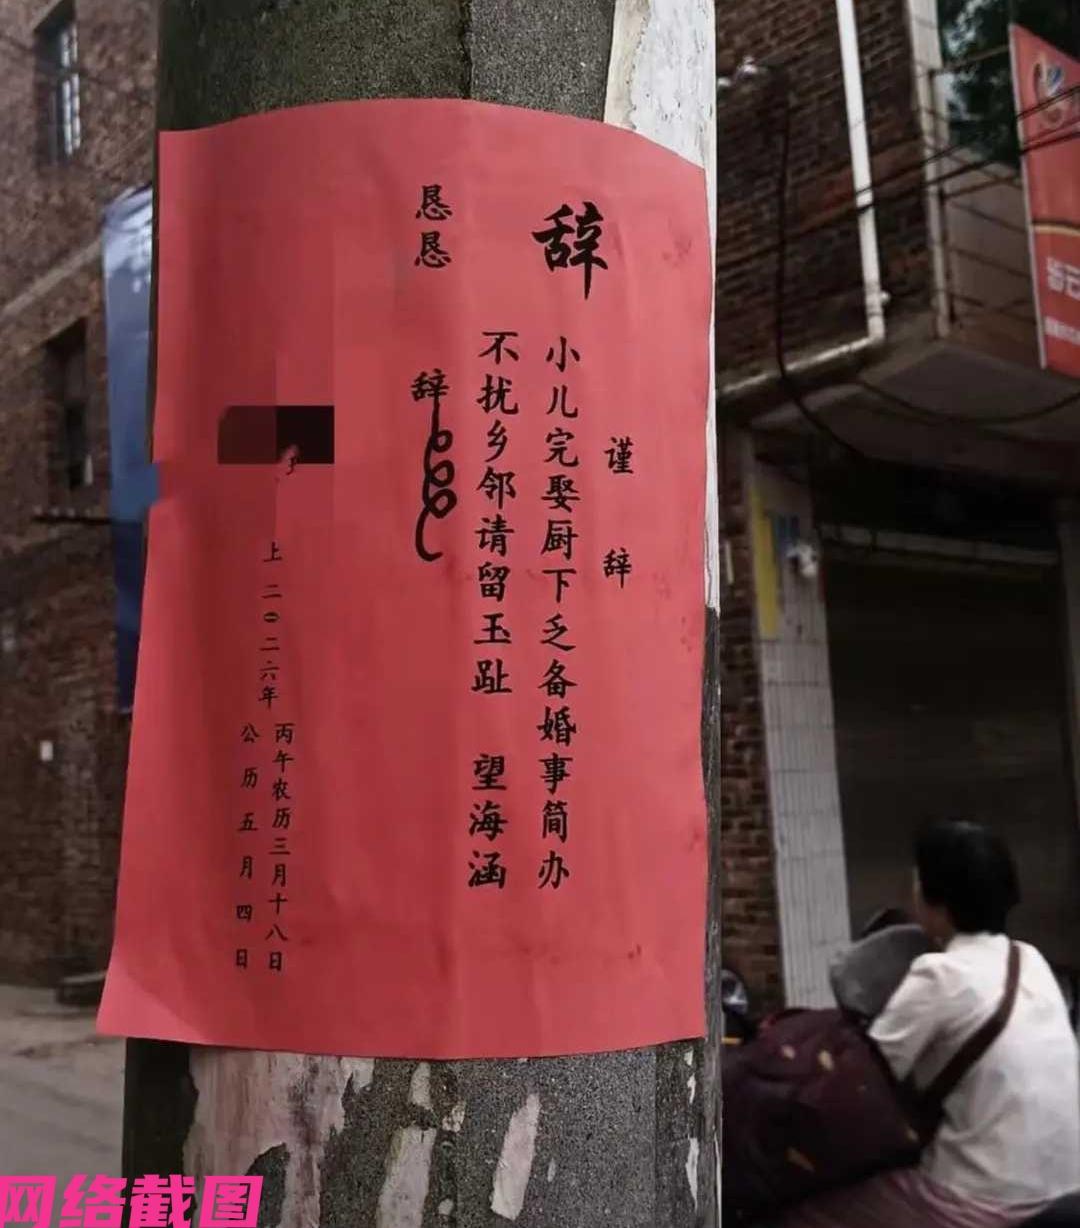 谨辞
辞
小儿完娶厨下乏备婚事简办
不扰乡邻请留玉趾 望海涵
恳恳 辞
上
二〇二六年
丙午农历三月十八日
公历五月四日
网络截图